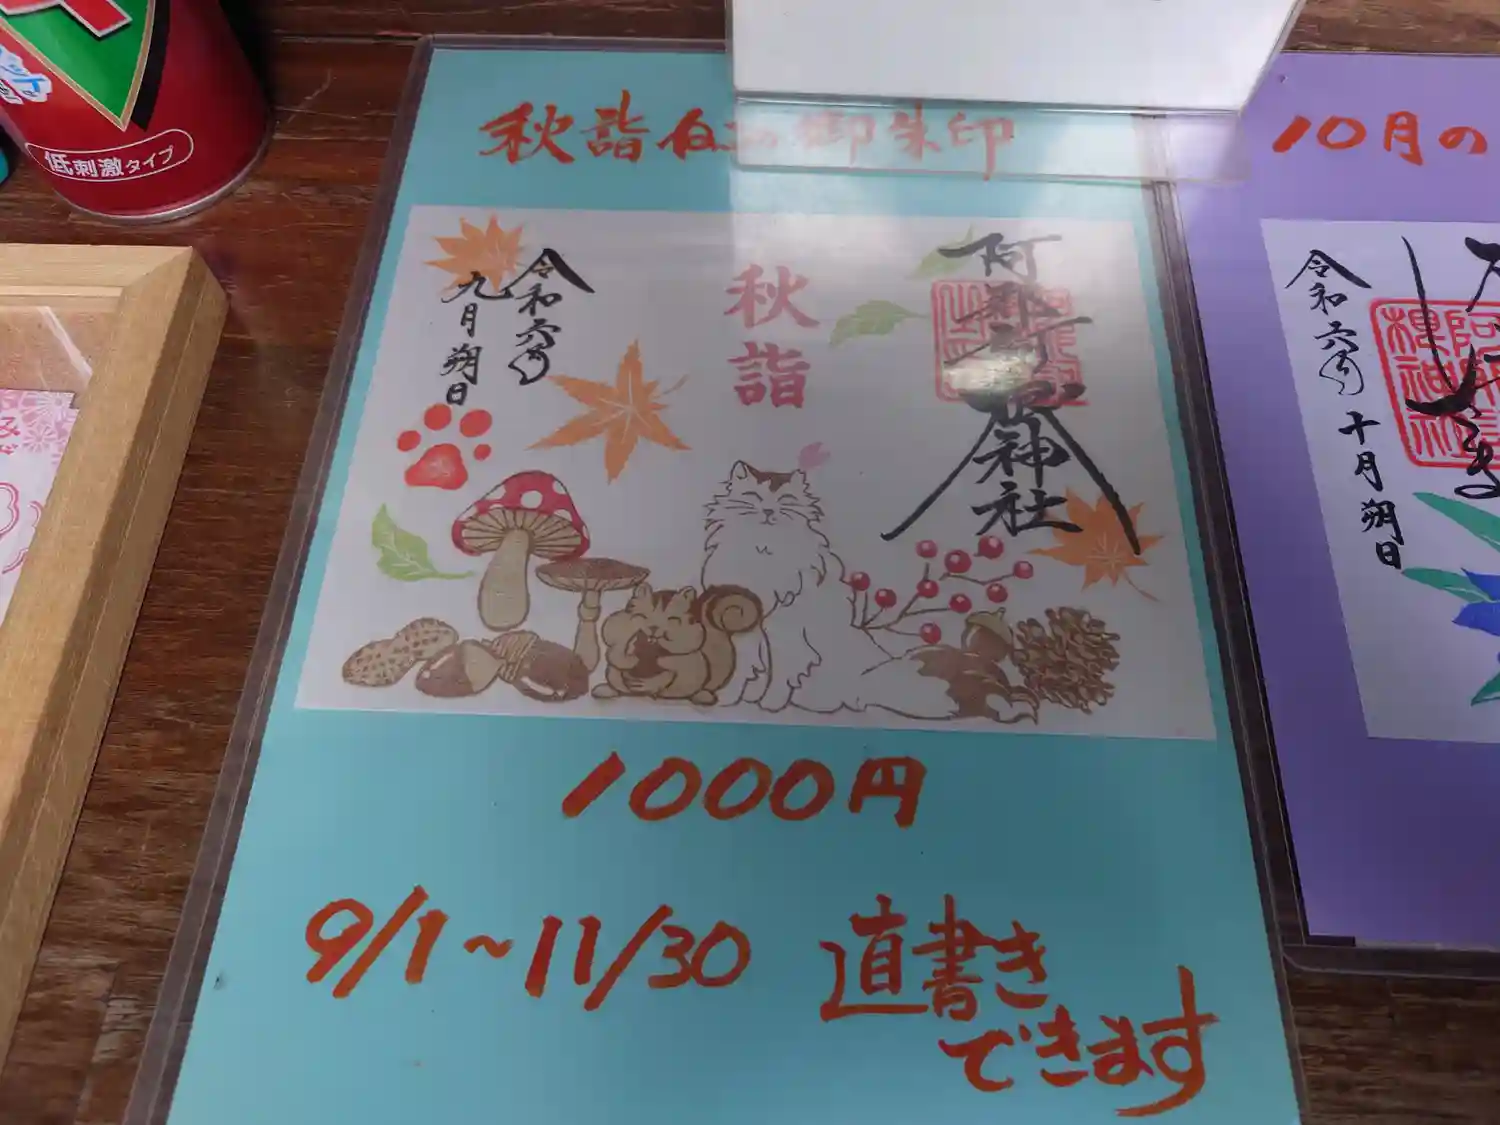 低刺激タイプ
秋詣
御朱印
10月の
令和六年
九月朔日
秋詣
神社
令和六年
十月朔日
1000円
9/1~11/30
直書き
できます